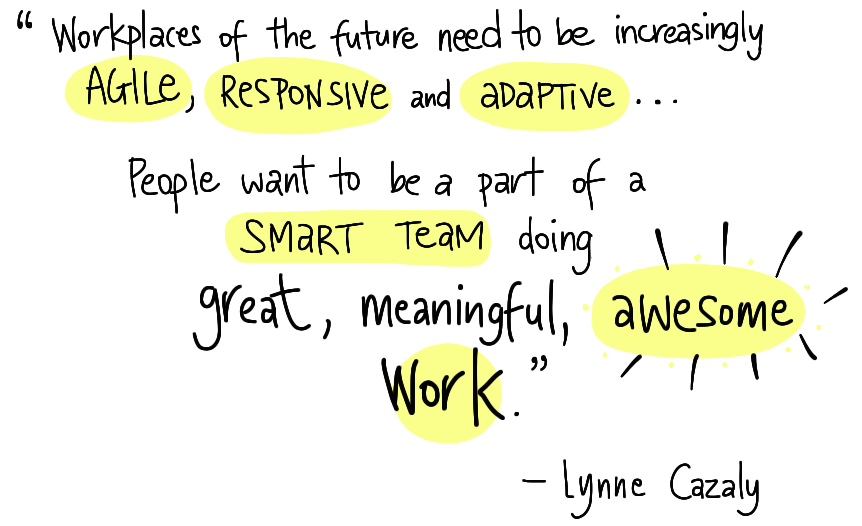 “ Workplaces of the future need to be increasingly
AGILe, ReSPONSIVe and aDaPTIVe ...
People want to be a part of a
SMaRT TeaM doing
great, meaningful, awesome
Work.”
– Lynne Cazaly